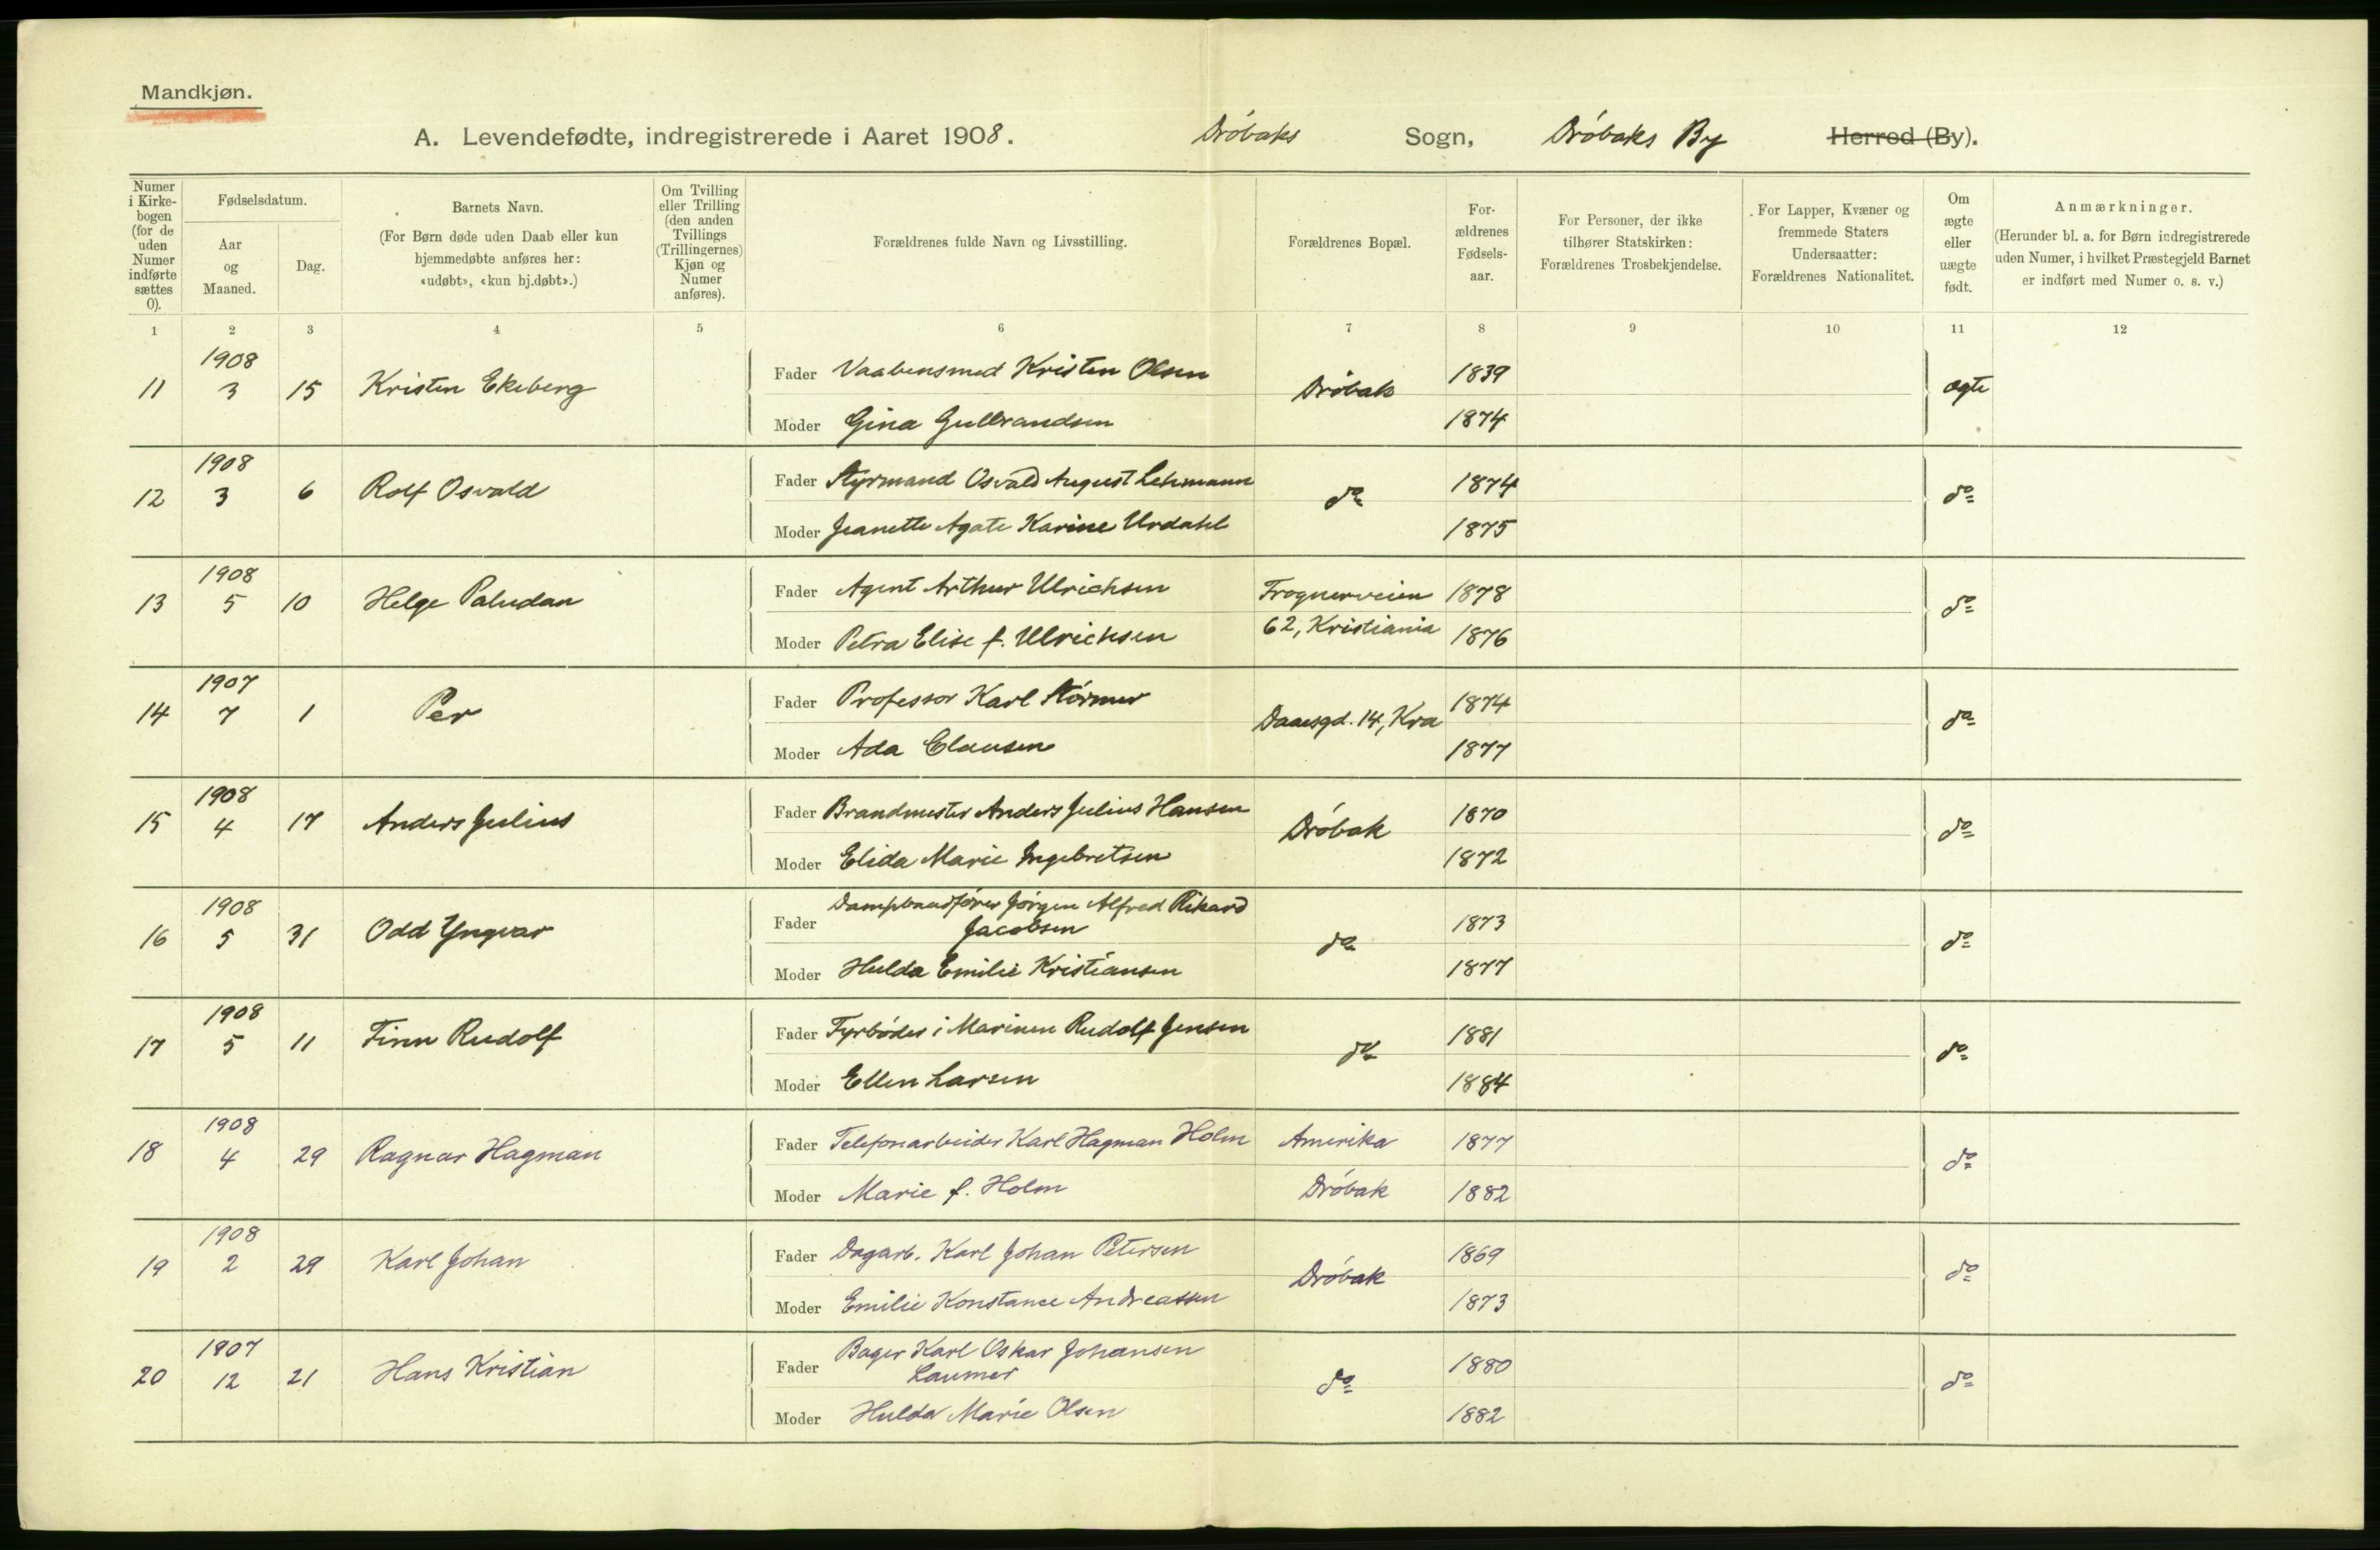 Mandkjøn.
A. Levendefødte, indregistrerede i Aaret 1908. Drøbaks Sogn, Drøbaks By Herred (By).
Numer i Kirke-bogen (for de uden Numer indførte sættes 0).
Fødselsdatum.
Aar og Maaned.
Dag.
Barnets Navn.
(For Børn døde uden Daab eller kun
hjemmedøbte anføres her:
«udøbt», «kun hj.døbt».)
Om Tvilling
eller Trilling
(den anden
Tvillings
(Trillingernes)
Kjøn og
Numer
anføres).
Forældrenes fulde Navn og Livsstilling.
Forældrenes Bopæl.
For-
ældrenes
Fødsels-
aar.
For Personer, der ikke
tilhører Statskirken:
Forældrenes Trosbekjendelse.
For Lapper, Kvæner og
fremmede Staters
Undersaatter:
Forældrenes Nationalitet.
Om
ægte
eller
uægte
født.
Anmærkninger.
(Herunder bl. a. for Børn indregistrerede
uden Numer, i hvilket Præstegjeld Barnet
er indført med Numer o. s. v.)
1 2 3 4 5 6 7 8 9 10 11 12
1908
11 3 15 Kristen Ekeberg Fader Vaabensmed Kristen Olsen Drøbak 1839 ægte
Moder Gina Gulbrandsen 1874
1908
12 3 6 Rolf Osvald Fader Styrmand Osvald August Lehmann do 1874 do
Moder Jeanette Agate Karine Urdahl 1875
1908
13 5 10 Helge Paludan Fader Agent Arthur Ulrichsen Frognerveien 1878 do
Moder Petra Elise f. Ulrichsen 62, Kristiania 1876
1907
14 7 1 Per Fader Professor Karl Størmer Daaesgd. 14, Kra 1874 do
Moder Ada Clausen 1877
1908
15 4 17 Anders Julius Fader Brandmester Anders Julius Hansen Drøbak 1870 do
Moder Elida Marie Ingebretsen 1872
1908
16 5 31 Odd Yngvar Fader Dampbaadfører Jørgen Alfred Rikard
Jacobsen do 1873 do
Moder Hulda Emilie Kristiansen 1877
1908
17 5 11 Finn Rudolf Fader Fyrbøder i Marinen Rudolf Jensen do 1881 do
Moder Ellen Larsen 1884
1908
18 4 29 Ragnar Hagman Fader Telefonarbeider Karl Hagman Holm Amerika 1877 do
Moder Marie f. Holm Drøbak 1882
1908
19 2 29 Karl Johan Fader Dagarb. Karl Johan Petersen Drøbak 1869 do
Moder Emilie Konstance Andreassen 1873
1907
20 12 21 Hans Kristian Fader Bager Karl Oskar Johansen
Laumer do 1880 do
Moder Hulda Marie Olsen 1882